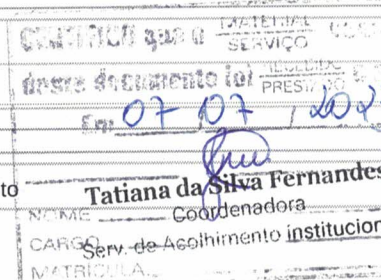 CERTIFICO que o MATERIAL
SERVIÇO
deste documento foi RECEBIDO
PRESTADO
Em: 07 / 07 / 202
to
Tatiana da Silva Fernandes
NOME Coordenadora
CARGO Serv. de Acolhimento institucion
MATRÍCULA